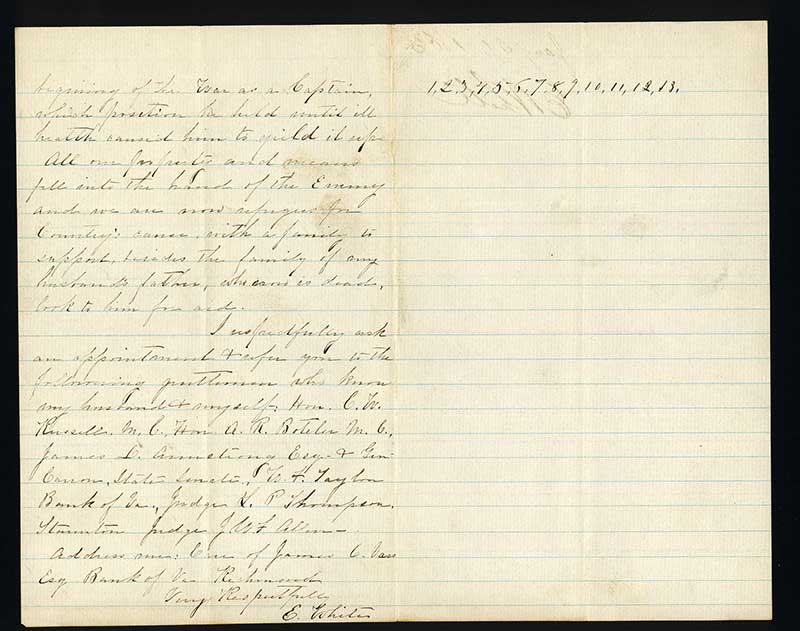 begining of the War as a Captain,
which position he held until ill
health caused him to yield it up.
All our property and means
fell into the hand of the Enemy
and we are now refugees for
Country's cause, with a family to
support, besides the family of my
husband's father, who now is dead,
look to him for aid.
I respectfully ask
an appointment & refer you to the
following gentlemen who know
my husband & myself: Hon. C. W.
Russell M. C., Hon A. R. Boteler M. C.,
James D. Armstrong Esq & Gen
Carson, State Senate, W. F. Taylor
Bank of Va., Judge L. P. Thompson,
Staunton Judge J. W. F. Allen—
Address me: Care of James C. Vass
Esq Bank of Va Richmond
Very Respectfully
E. White
1,2,3,4,5,6,7,8,9,10,11,12,13.